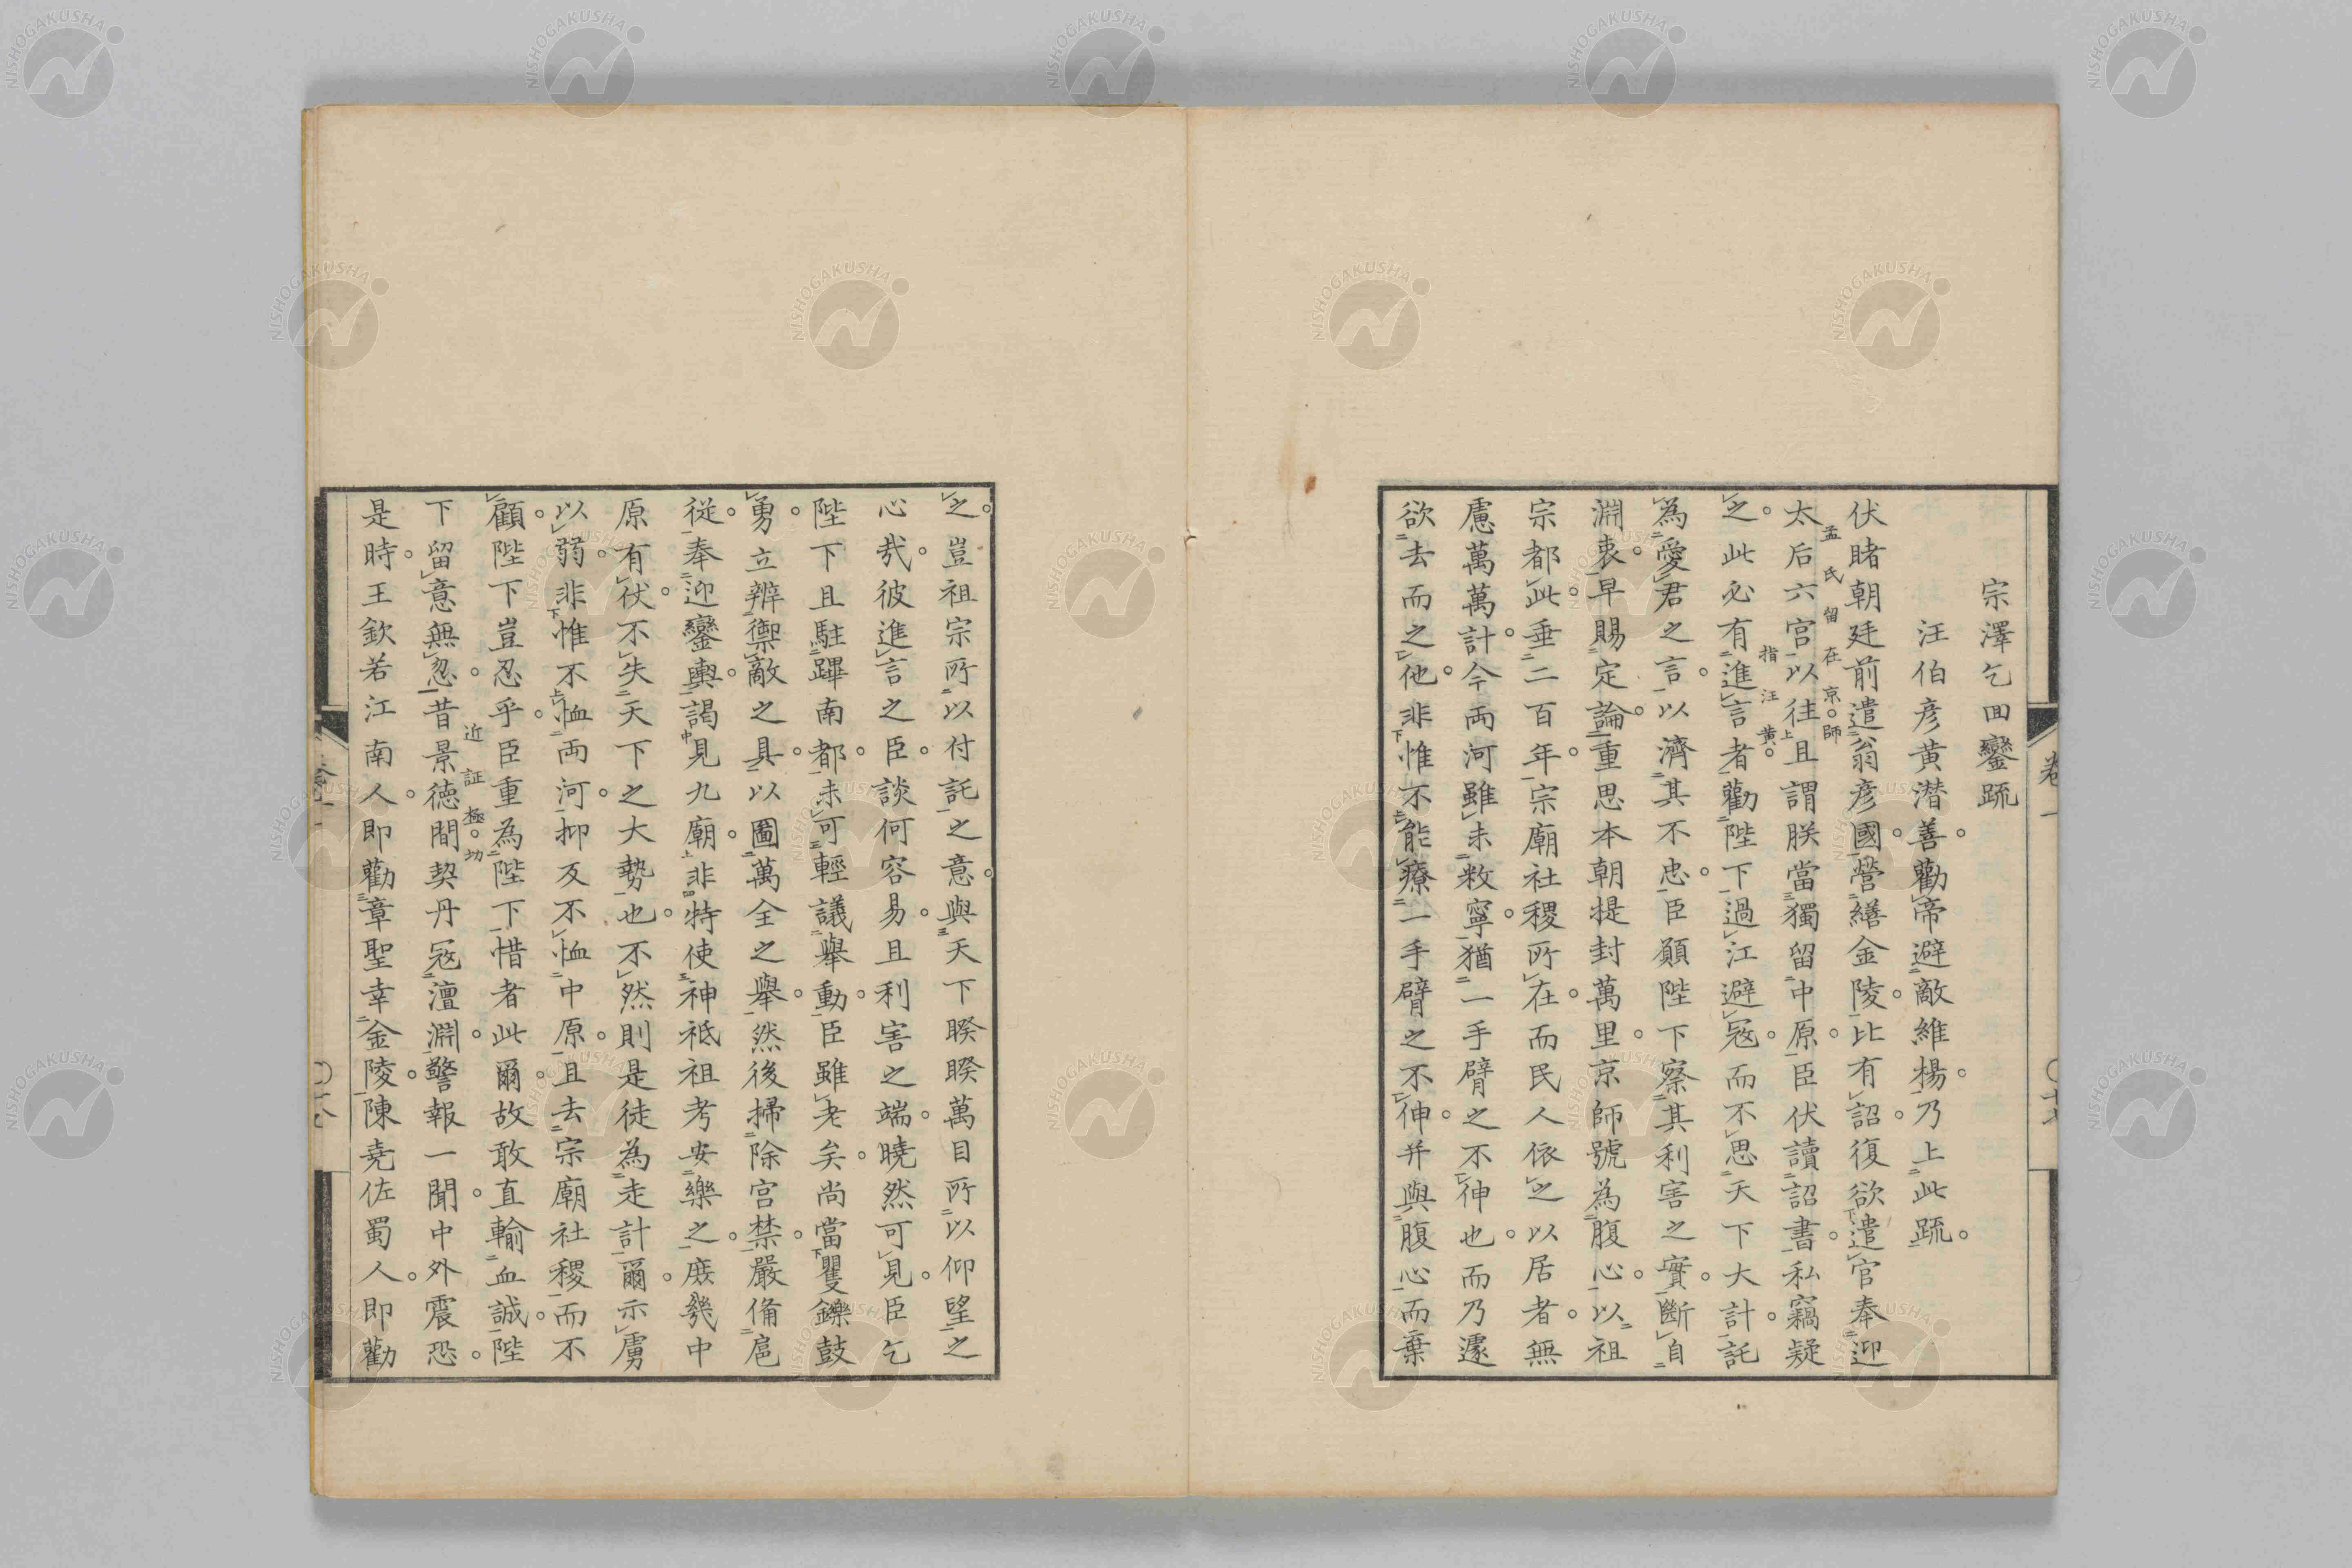 宗澤乞回鑾疏
汪伯彦黄潜善勸帝避敵維楊乃上此疏
伏睹朝廷前遣翁彦國營繕金陵比有詔復欲遣官奉迎
孟氏留在京師
太后六宫以往且謂朕當獨留中原臣伏讀詔書私竊疑
指汪黄
之此必有進言者勸陛下過江避冦而不思天下大計託
為愛君之言以濟其不忠臣願陛下察其利害之實斷自
淵衷早賜定論重思本朝提封萬里京師號為腹心以祖
宗都此垂二百年宗廟社稷所在而民人依之以居者無
慮萬萬計今兩河雖未敉寧猶一手臂之不伸也而乃遽
欲去而之他非惟不能療一手臂之不伸并與腹心而棄
卷一
之豈祖宗所以付託之意與天下睽睽萬目所以仰望之
心㢤彼進言之臣談何容易且利害之端曉然可見臣乞
陛下且駐蹕南都未可輕議舉動臣雖老矣尚當矍鑠鼓
勇立辨禦敵之具以圖萬全之舉然後掃除宫禁嚴備扈
従奉迎鑾輿謁見九廟非特使神祗祖考安樂之庶幾中
原有伏不失天下之大勢也不然則是徒為走計爾示虜
以弱非惟不恤両河抑反不恤中原且去宗廟社稷而不
顧陛下豈忍乎臣重為陛下惜者此爾故敢直輸血誠陛
近証極切
下留意無忽昔景徳間契丹冦澶淵警報一聞中外震恐
是時王欽若江南人即勸章聖幸金陵陳尭佐蜀人即勸